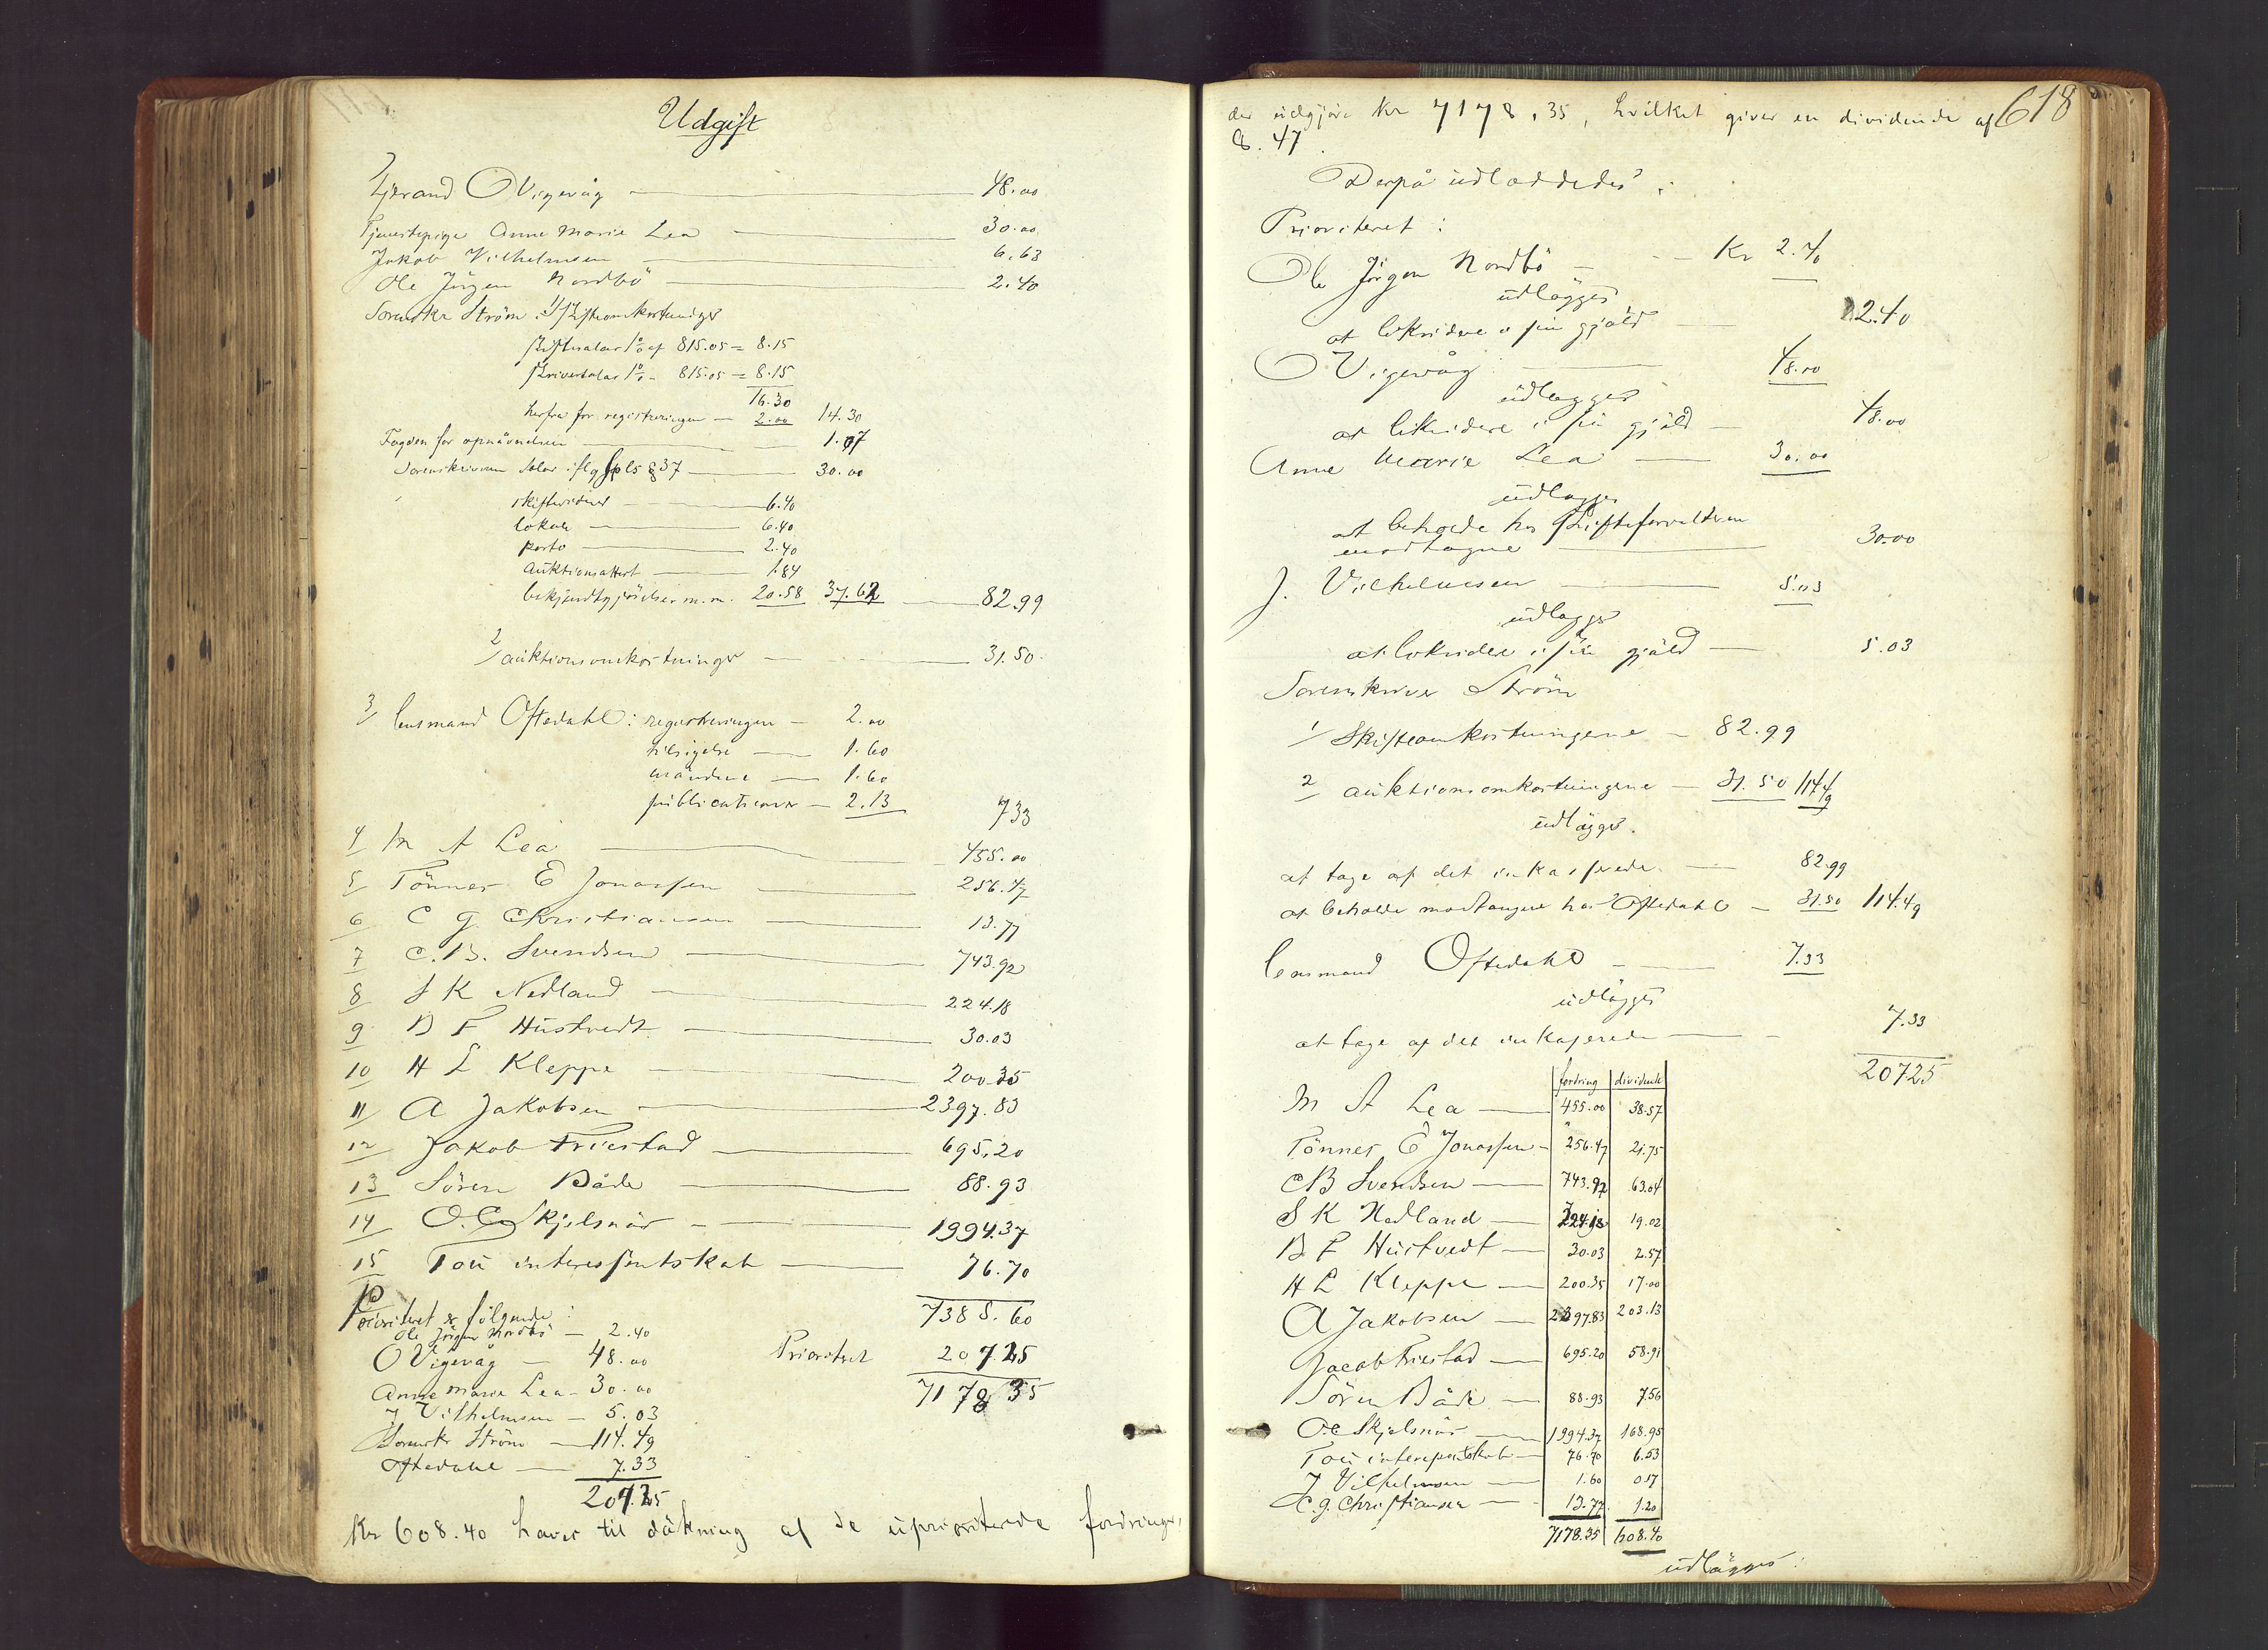 Udgift
Tjerand O Vigevåg — 48.00
Tjenestepige Anne Marie Lea — 30.00
Jakob Vilhelmsen — 6.63
Ole Jörgen Nordbö — 2.40
Sorenskr Ström: 1/ Skifteomkostninger
skiftesalær 1% af 815.05 = 8.15
skriversalær 1% - 815.05 = 8.15
16.30
herfra for registreringen — 2.00 14.30
Fogden for opnævnelsen — 1.07
Sorenskriveren Salær iflg Spls § 37 — 30.00
skiftevidner — 6.40
lokale — 6.40
porto — 2.40
auktionsattest — 1.84
bekjendtgjörelser m.m. 20.58 37.62 — 82.99
2/ auktionsomkostninger — 31.50
3/ lensmand Oftedahl: registreringen — 2.00
tilsigelse — 1.60
mændene — 1.60
publicationer — 2.13 733
4/ M A Lea — 455.00
5/ Tönnes E Jonassen — 256.47
6 C G Christiansen — 13.77
7 C.B. Svendsen — 743.92
8 S K Nedland — 224.18
9 B F Hustvedt — 30.03
10 H L Kleppe — 200.35
11/ A Jakobsen — 2397.83
12 Jakob Friestad — 695.20
13 Sören Både — 88.93
14 O.C. Skjelsnär — 1994.37
15 Tou interessentskab — 76.70
7385.60
Prioriteret er fölgende:
Ole Jörgen Nordbö — 2.40
O Vigevåg — 48.00 Prioriteret 207.25
Anne Marie Lea — 30.00 7178.35
J Vilhelmsen — 5.03
Sorenskr Ström — 114.49
Oftedahl — 7.33
207.25
Kr 608.40 haves til däkning af de uprioriterede fordringer,
618
der udgjöre Kr 7178.35, hvilket giver en dividende af
8.47
Derpå udloddedes:
Prioriteret:
Ole Jörgen Nordbö — Kr 2.40
udlägges
at likvidere i sin gjäld — 2.40
O Vigevåg — 48.00
udlägges
at likvidere i sin gjäld — 48.00
Anne Marie Lea — 30.00
udlägges
at beholde hos Skifteforvalteren
modtagne — 30.00
J. Vilhelmsen — 5.03
udlägges
at likvidere i sin gjäld — 5.03
Sorenskriver Ström
1/ Skifteomkostningerne — 82.99
2 auktionsomkostningerne — 31.50 114.49
udlägges.
at tage af det inkasserede — 82.99
at beholde modtagne hos Oftedahl — 31.50 114.49
lensmand Oftedahl — 7.33
udlägges
at tage af det inkasserede — 7.33
207.25
fordring dividende
M A Lea — 455.00 38.57
Tönnes E Jonassen — 256.47 21.75
C B Svendsen — 743.92 63.04
S K Nedland — 224.18 19.02
B F Hustvedt — 30.03 2.57
H L Kleppe — 200.35 17.00
A Jakobsen — 2397.83 203.13
Jacob Friestad — 695.20 58.91
Sören Både — 88.93 7.56
O.C Skjelsnär — 1994.37 168.95
Tou interessentskab — 76.70 6.53
J Vilhelmsen — 1.60 0.17
C.G. Christiansen — 13.77 1.20
7178.35 608.40
udlägges: